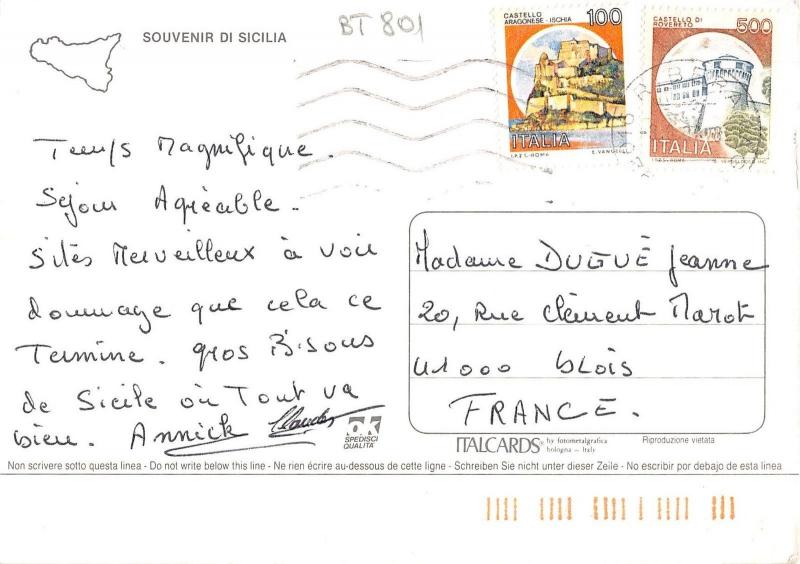 SOUVENIR DI SICILIA
BT 801
CASTELLO ARAGONESE - ISCHIA 100
ITALIA
I.P.Z.S. - ROMA
CASTELLO DI ROVERETO 500
ITALIA
I.P.Z.S. - ROMA
Temps Magnifique.
Séjour Agréable.
Sites Merveilleux à voir
dommage que cela ce
Termine. gros Bisous
de Sicile où Tout va
bien. Annick Claude
Madame DUGUÉ Jeanne
20, Rue Clément Marot
41000 BLOIS
FRANCE.
ok
SPEDISCI
QUALITA'
ITALCARDS® by fotometalgrafica
bologna - Italy
Riproduzione vietata
Non scrivere sotto questa linea - Do not write below this line - Ne rien écrire au-dessous de cette ligne - Schreiben Sie nicht unter dieser Zeile - No escribir por debajo de esta linea